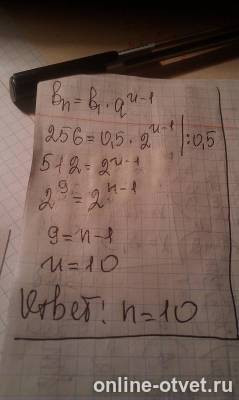 bn = b1 · q^n-1
256 = 0,5 · 2^n-1 | : 0,5
512 = 2^n-1
2^9 = 2^n-1
9 = n-1
n = 10
Ответ: n=10
online-otvet.ru